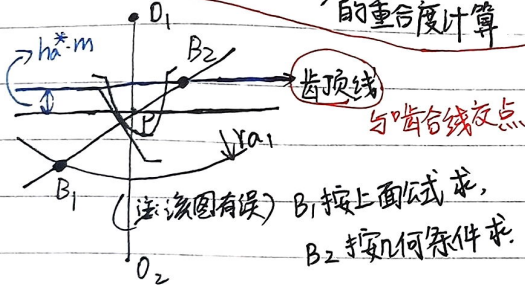 的重合度计算
O₁
ha*·m
B₂
齿顶线
与啮合线交点
P
ra₁
B₁
(注:该图有误) B₁按上面公式求,
B₂按几何条件求.
O₂